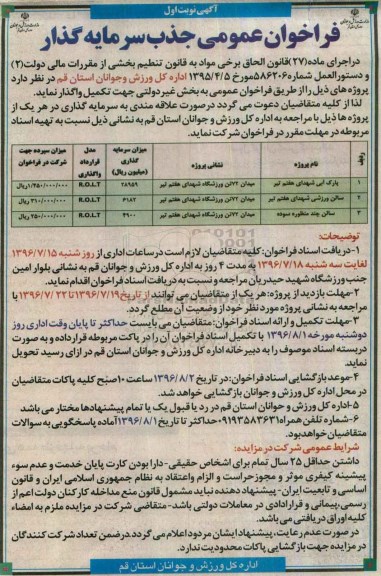 آگهی نوبت اول
فراخوان عمومی جذب سرمایه گذار
دراجرای ماده(۲۷)قانون الحاق برخی مواد به قانون تنظیم بخشی از مقررات مالی دولت(۲)
و دستورالعمل شماره۵۸۶۲۰۶مورخ ۱۳۹۵/۴/۵ اداره کل ورزش وجوانان استان قم در نظر دارد
پروژه های ذیل را از طریق فراخوان عمومی به بخش غیردولتی جهت تکمیل واگذار نماید.
لذا از کلیه متقاضیان دعوت می گردد درصورت علاقه مندی به سرمایه گذاری در هر یک از
پروژه ها ذیل با مراجعه به اداره کل ورزش و جوانان استان قم به نشانی ذیل نسبت به تهیه اسناد
مربوطه در مهلت مقرر در فراخوان شرکت نماید.
ردیف نام پروژه نشانی پروژه میزان سرمایه گذاری (میلیون ریال) مدل قرارداد واگذاری میزان سپرده جهت شرکت در فراخوان
۱ پارک آبی شهدای هفتم تیر میدان ۷۲تن ورزشگاه شهدای هفتم تیر ۲۸۹۵۹ R.O.L.T ۱/۴۵۰/۰۰۰/۰۰۰ریال
۲ سالن ورزشی شهدای هفتم تیر میدان ۷۲تن ورزشگاه شهدای هفتم تیر ۶۱۸۲ R.O.L.T ۳۱۰/۰۰۰/۰۰۰ ریال
۳ سالن چند منظوره سوده میدان ۷۲تن ورزشگاه شهدای هفتم تیر ۴۹۰۰ R.O.L.T ۲۵۰/۰۰۰/۰۰۰ ریال
توضیحات:
۱-دریافت اسناد فراخوان: کلیه متقاضیان لازم است در ساعات اداری از روز شنبه ۱۳۹۶/۷/۱۵
لغایت سه شنبه ۱۳۹۶/۷/۱۸به مدت ۴ روز به اداره کل ورزش و جوانان قم به نشانی بلوار امین
جنب ورزشگاه شهید حیدریان مراجعه و نسبت به دریافت اسناد فراخوان اقدام نماید.
۲-مهلت بازدید از پروژه: هر یک از متقاضیان می توانند از تاریخ۱۳۹۶/۷/۱۹ تا ۱۳۹۶/۷/۲۲ با
مراجعه به نشانی پروژه مورد نظر خود از وضعیت آن مطلع گردد.
۳-مهلت تکمیل و ارائه اسناد فراخوان: متقاضیان می بایست حداکثر تا پایان وقت اداری روز
دوشنبه مورخه۱۳۹۶/۸/۱ با تکمیل اسناد فراخوان آن را در پاکت مربوطه قرارداده و به صورت
دربسته اسناد موصوف را به دبیرخانه اداره کل ورزش و جوانان استان قم در ازای رسید تحویل
نماید.
۴-موعد بازگشایی اسناد فراخوان:در تاریخ ۱۳۹۶/۸/۲ ساعت ۱۰صبح کلیه پاکات متقاضیان
در محل اداره کل ورزش و جوانان بازگشایی خواهد شد.
۵-اداره کل ورزش و جوانان استان قم در رد یا قبول یک یا تمام پیشنهادها مختار می باشد
۶-شماره تلفن همراه۰۹۱۹۳۵۸۳۶۳۱حداکثر تا تاریخ ۱۳۹۶/۸/۱آماده پاسخگویی به سوالات
متقاضیان خواهدبود.
شرایط عمومی شرکت در مزایده:
داشتن حداقل ۲۵ سال تمام برای اشخاص حقیقی-دارا بودن کارت پایان خدمت و عدم سوء
پیشینه کیفری موثر و مجوز حراست و الزام واعتقاد به نظام جمهوری اسلامی ایران و قانون
اساسی و تابعیت ایران-پیشنهاد دهنده نباید مشمول قانون منع مداخله کارکنان دولت اعم از
رسمی،پیمانی و قراردادی در معاملات دولتی باشد-متقاضی شرکت در مزایده ملزم به امضاء
کلیه اوراق دریافتی می باشد.
در صورت عدم رعایت،پیشنهاد ایشان مردود اعلام می گردد.درضمن تعداد شرکت کنندگان
در مزایده جهت بازگشایی پاکات محدودیت ندارد.
اداره کل ورزش و جوانان استان قم